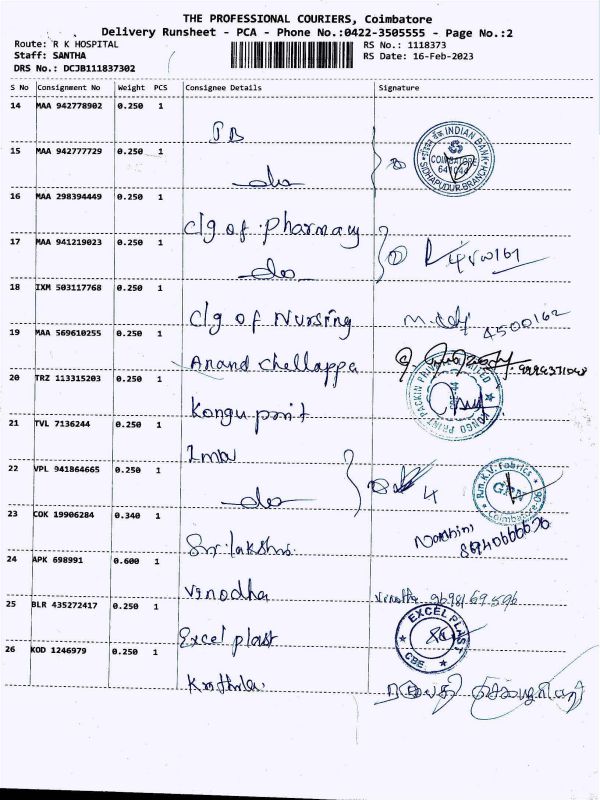 THE PROFESSIONAL COURIERS, Coimbatore
Delivery Runsheet - PCA - Phone No.:0422-3505555 - Page No.:2
Route: R K HOSPITAL
RS No.: 1118373
Staff: SANTHA
RS Date: 16-Feb-2023
DRS No.: DCJB111837302
S No Consignment No Weight PCS Consignee Details Signature
14 MAA 942778902 0.250 1
INDIAN BANK
COIMBATORE
SIDHAPUDUR BRANCH
15 MAA 942777729 0.250 1
do
16 MAA 298394449 0.250 1
clg of pharmacy
17 MAA 941219023 0.250 1
do
18 IXM 503117768 0.250 1
clg of Nursing
4500162
19 MAA 569610255 0.250 1
Anand chellappa
20 TRZ 113315203 0.250 1
Kongu print
21 TVL 7136244 0.250 1
22 VPL 941864665 0.250 1
do
4
Coimbatore
23 COK 19906284 0.340 1
Sri lakshmi
24 APK 698991 0.600 1
Vinodha
25 BLR 435272417 0.250 1
Excel plast
EXCEL PLAST
CBE
26 KOD 1246979 0.250 1